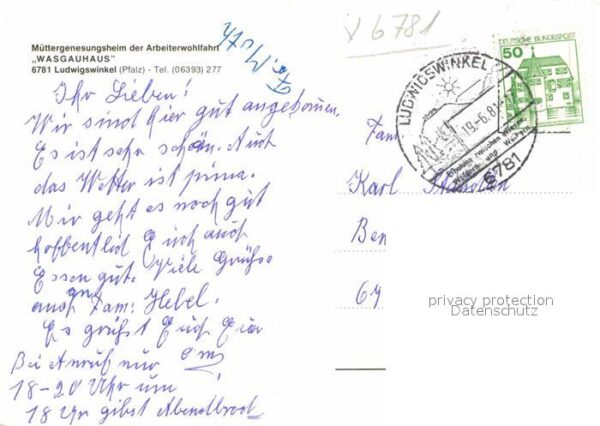 Müttergenesungsheim der Arbeiterwohlfahrt
„WASGAUHAUS"
6781 Ludwigswinkel (Pfalz) - Tel. (06393) 277
Ihr Lieben!
Wir sind hier gut angekommen.
Es ist sehr schön. Auch
das Wetter ist prima.
Mir geht es noch gut
hoffentlich Euch auch
Essen gut. Viele Grüße
auch an Fam: Hebel.
Es grüßt Euch Eure
Omi
Bei Anruf nur
18-20 Uhr um
18 Uhr gibst Abendbroot
6781
DEUTSCHE BUNDESPOST
50
LUDWIGSWINKEL
19.-6.81
6781
Fam
Karl
Ben
67
privacy protection
Datenschutz